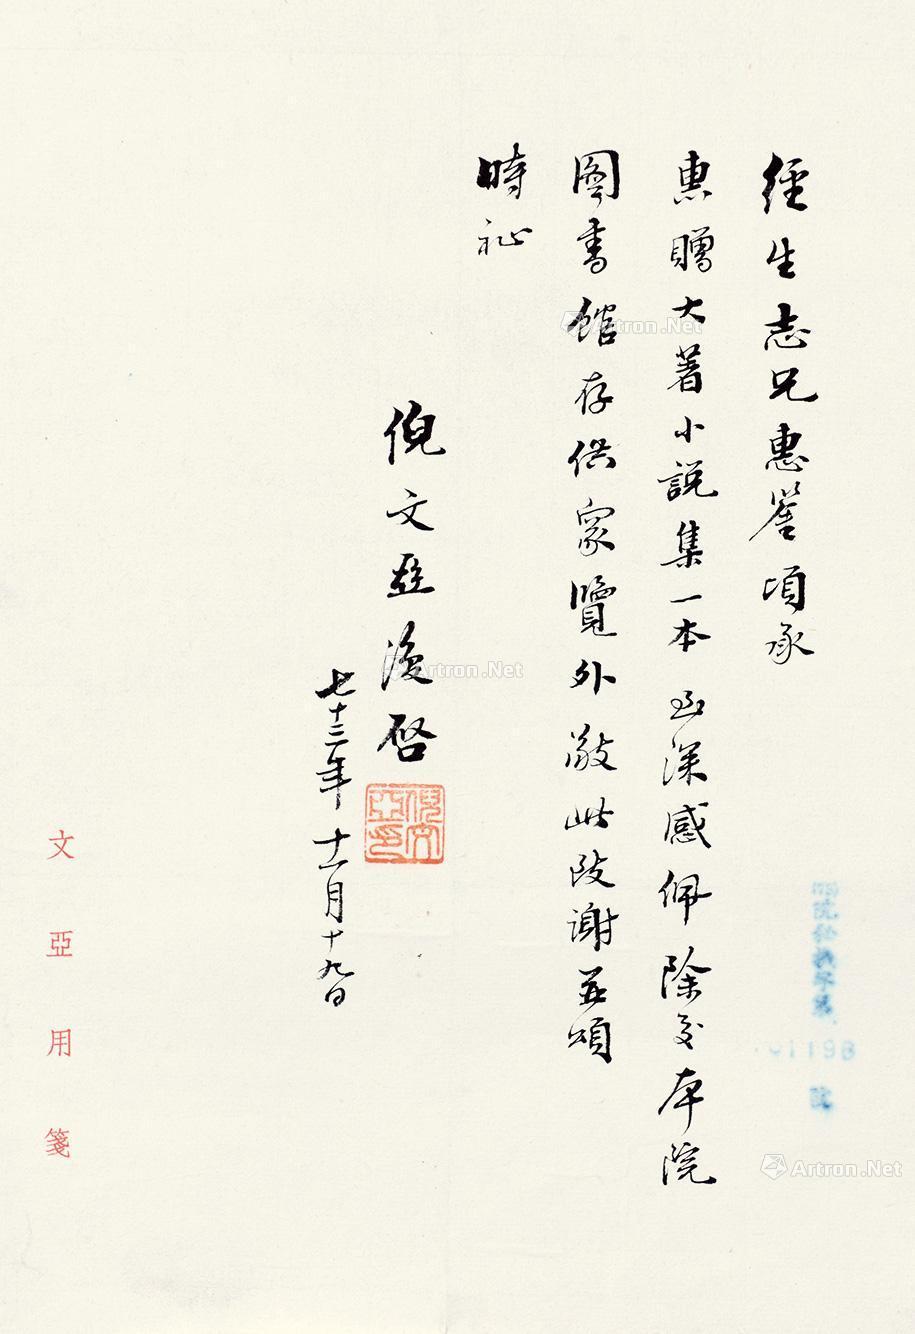 經生志兄惠詧頃承
惠贈大著小說集一本至深感佩除交本院
圖書館存供眾覽外敬此陵謝並頌
時祉
倪文亞復啓
七十三年十一月十九日
倪文亞印
文亞用箋
01198
Artron.Net
Artron.Net
Artron.Net